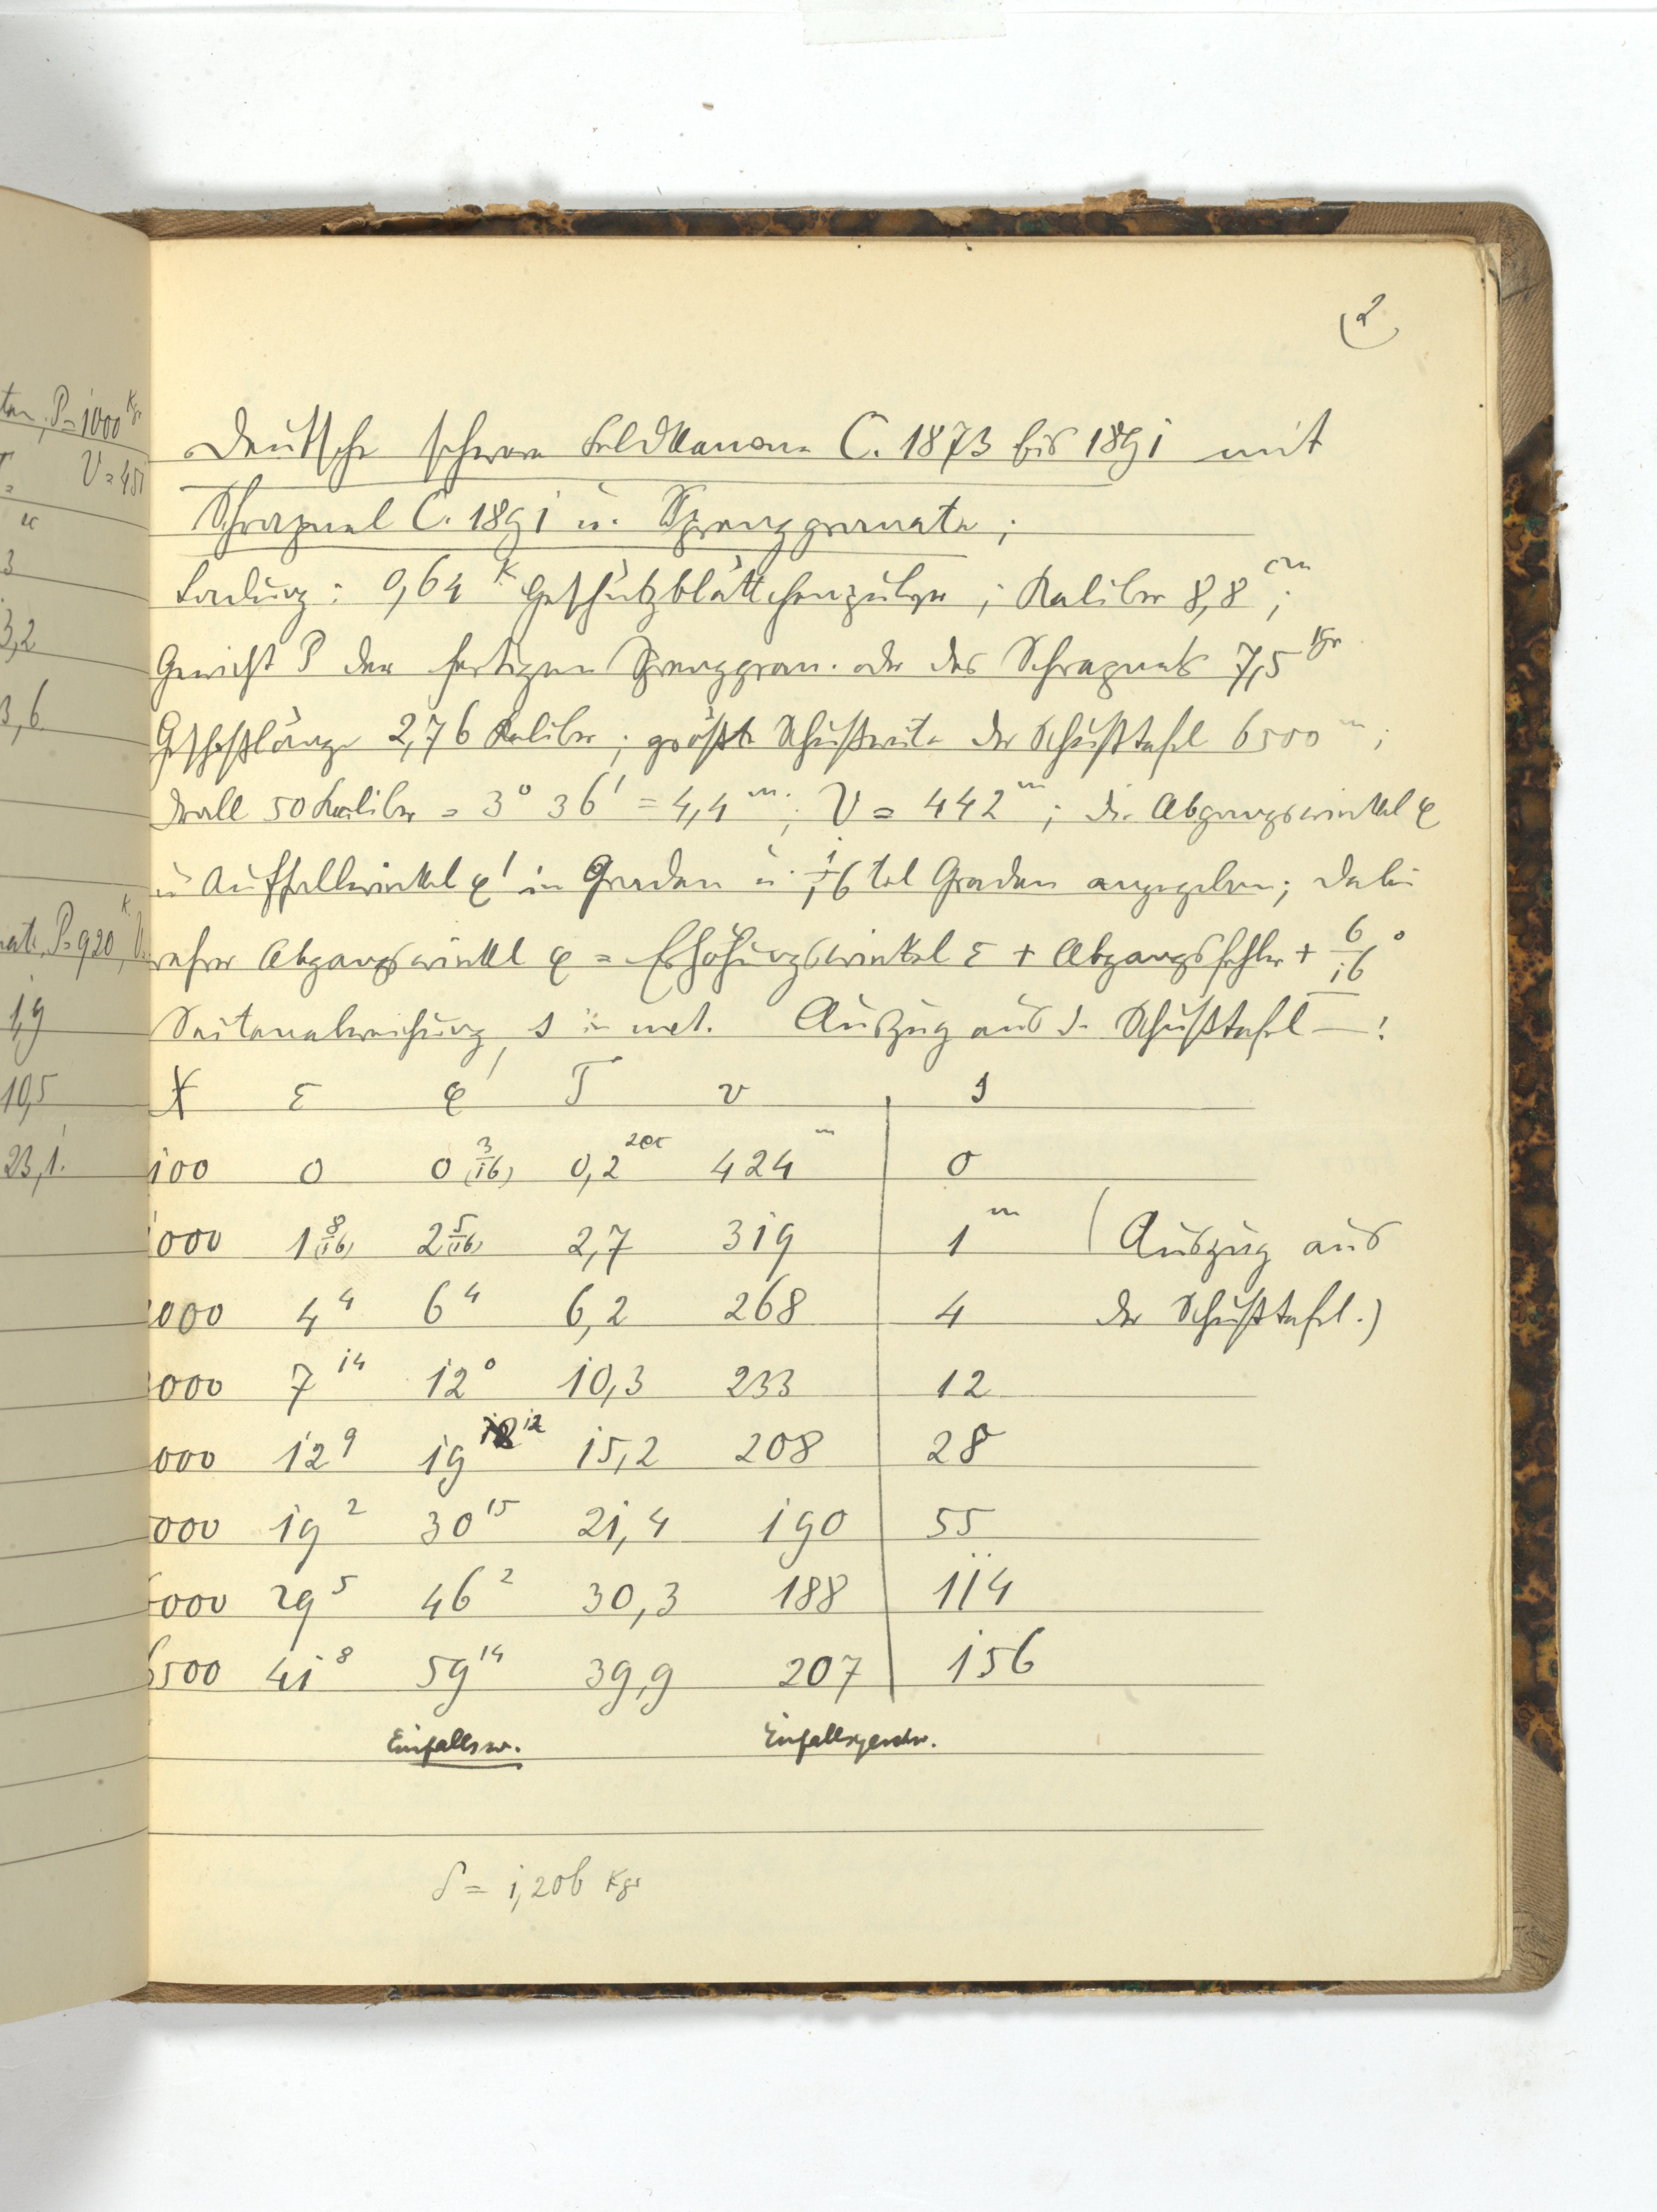 2
Deutsche schwere Feldkanone C. 1873 bis 1891 mit
Schrapnel C. 1891 u. Sprenggranate;
Ladung: 0,64 K Geschützblättchenpulver; Kaliber 8,8 cm;
Gewicht P der fertigen Sprenggran. oder des Schrapnels 7,5 Kgr
Geschoßlänge 2,76 Kaliber; größte Schußweite der Schußtafel 6500 m;
Drall 50 Kaliber = 3° 36' = 4,4 m; V = 442 m; die Abgangswinkel φ
u Auffallwinkel φ' in Graden u. 1/16 tel Graden angegeben; dabei
wahrer Abgangswinkel φ = Erhöhungswinkel ε + Abgangsfehler + 6/16°
Seitenabweichung s in met. Auszug aus d. Schußtafel —:
X ε φ' T v s
100 0 0 (3/16) 0,2 sec 424 m 0
1000 1 (8/16) 2 (5/16) 2,7 319 1 m (Auszug aus
000 4 4 6 4 6,2 268 4 der Schußtafel.)
000 7 14 12 0 10,3 233 12
000 12 9 19 12 15,2 208 28
5000 19 2 30 15 21,4 190 55
6000 29 5 46 2 30,3 188 114
6500 41 8 59 14 39,9 207 156
Einfallsw. Einfallsgeschw.
δ = 1,206 Kgr
ten, P=1000 Kgr
V=451
u
3
3,2
3,6
P=920 K, V
1,9
10,5
23,1.